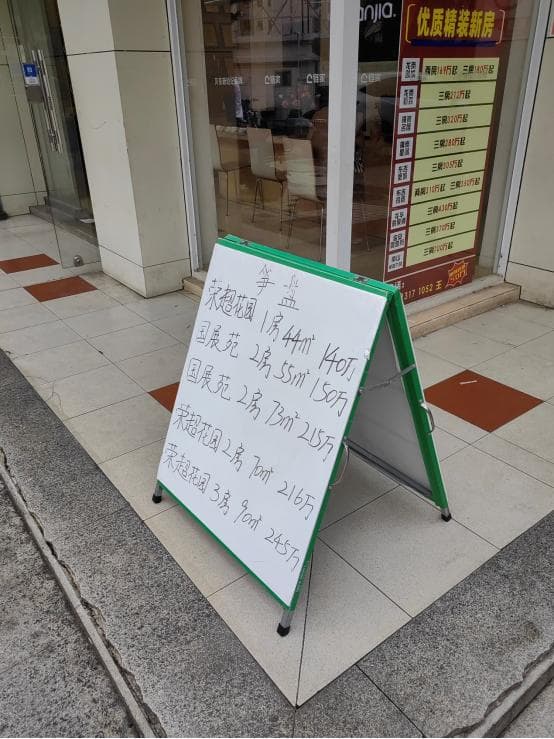 笋盘
荣超花园 1房 44㎡ 140万
国展苑 2房 55㎡ 150万
国展苑 2房 73㎡ 215万
荣超花园 2房 70㎡ 216万
荣超花园 3房 90㎡ 245万
anjia.
优质精装新房
两房169万起 三房180万起
三房212万起
三房220万起
三房280万起
三房305万起
两房210万起 三房260万起
三房430万起
三房370万起
317 1052 王